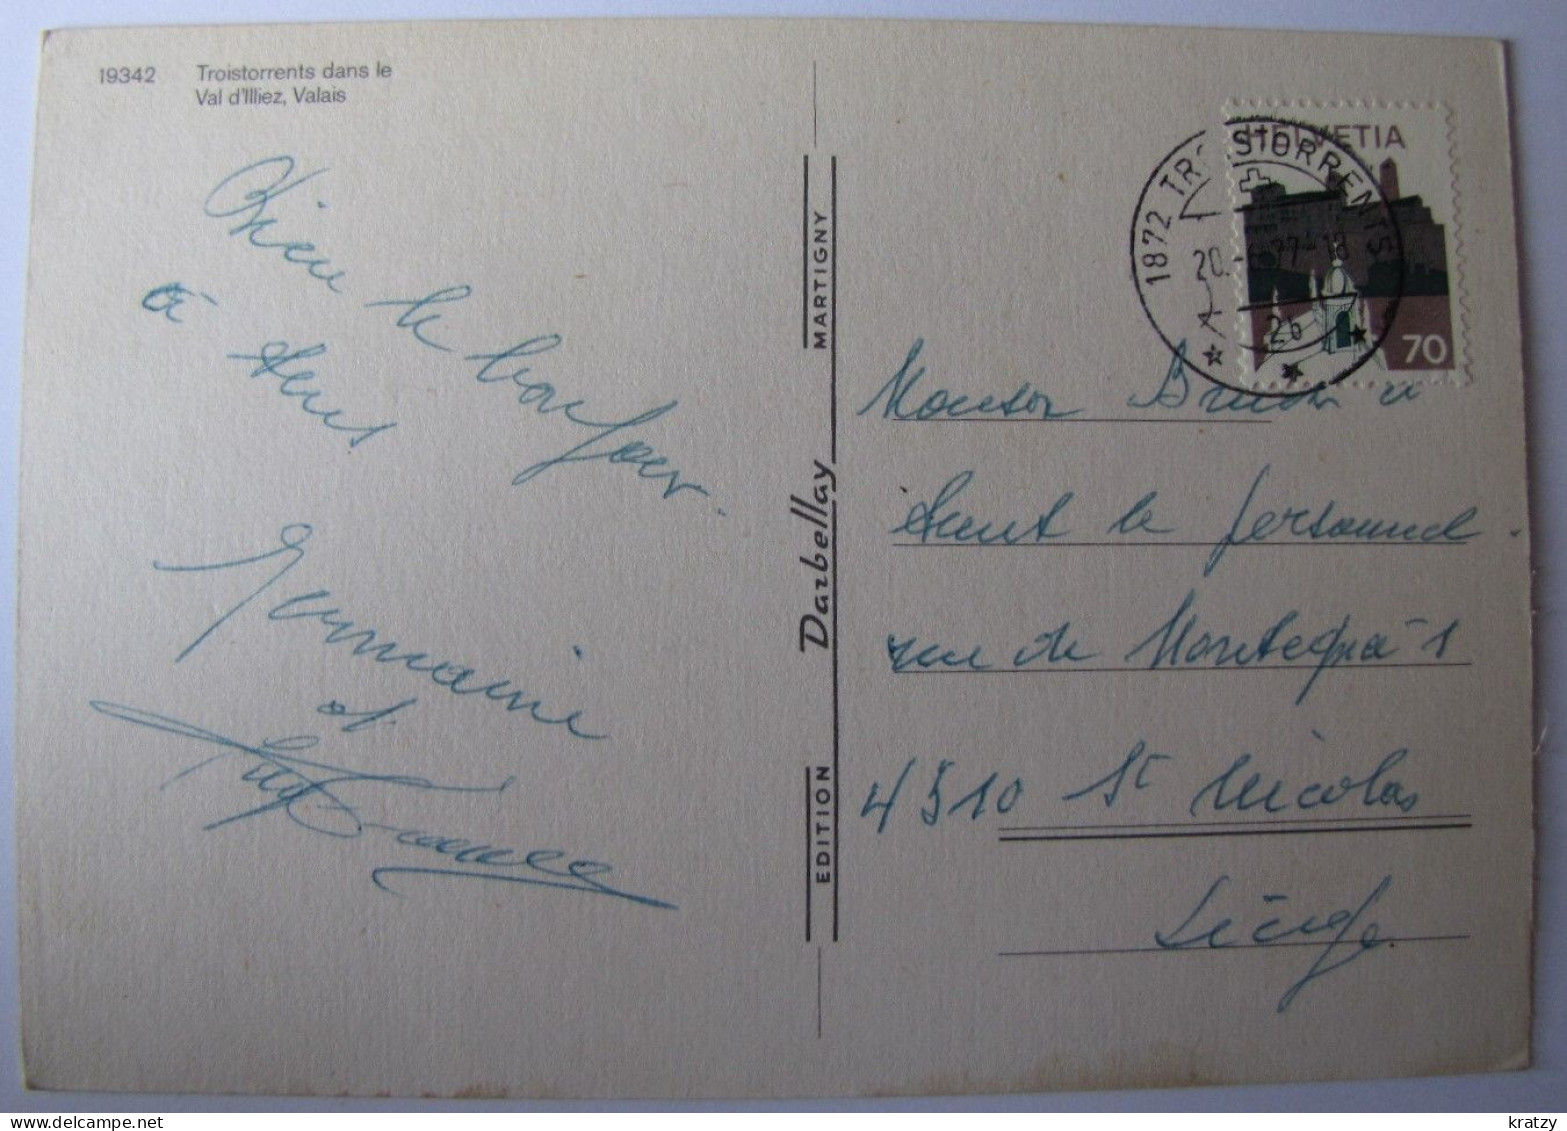 19342 Troistorrents dans le
Val d'Illiez, Valais
Bien le bonjour
à tous
Germaine
et
HELVETIA
70
1872 TROISTORRENTS
20.-6.77-18
26
MARTIGNY
Darbellay
EDITION
rue de
4510 St Nicolas
Liège
tout le personnel
delcampe.net
kratzy